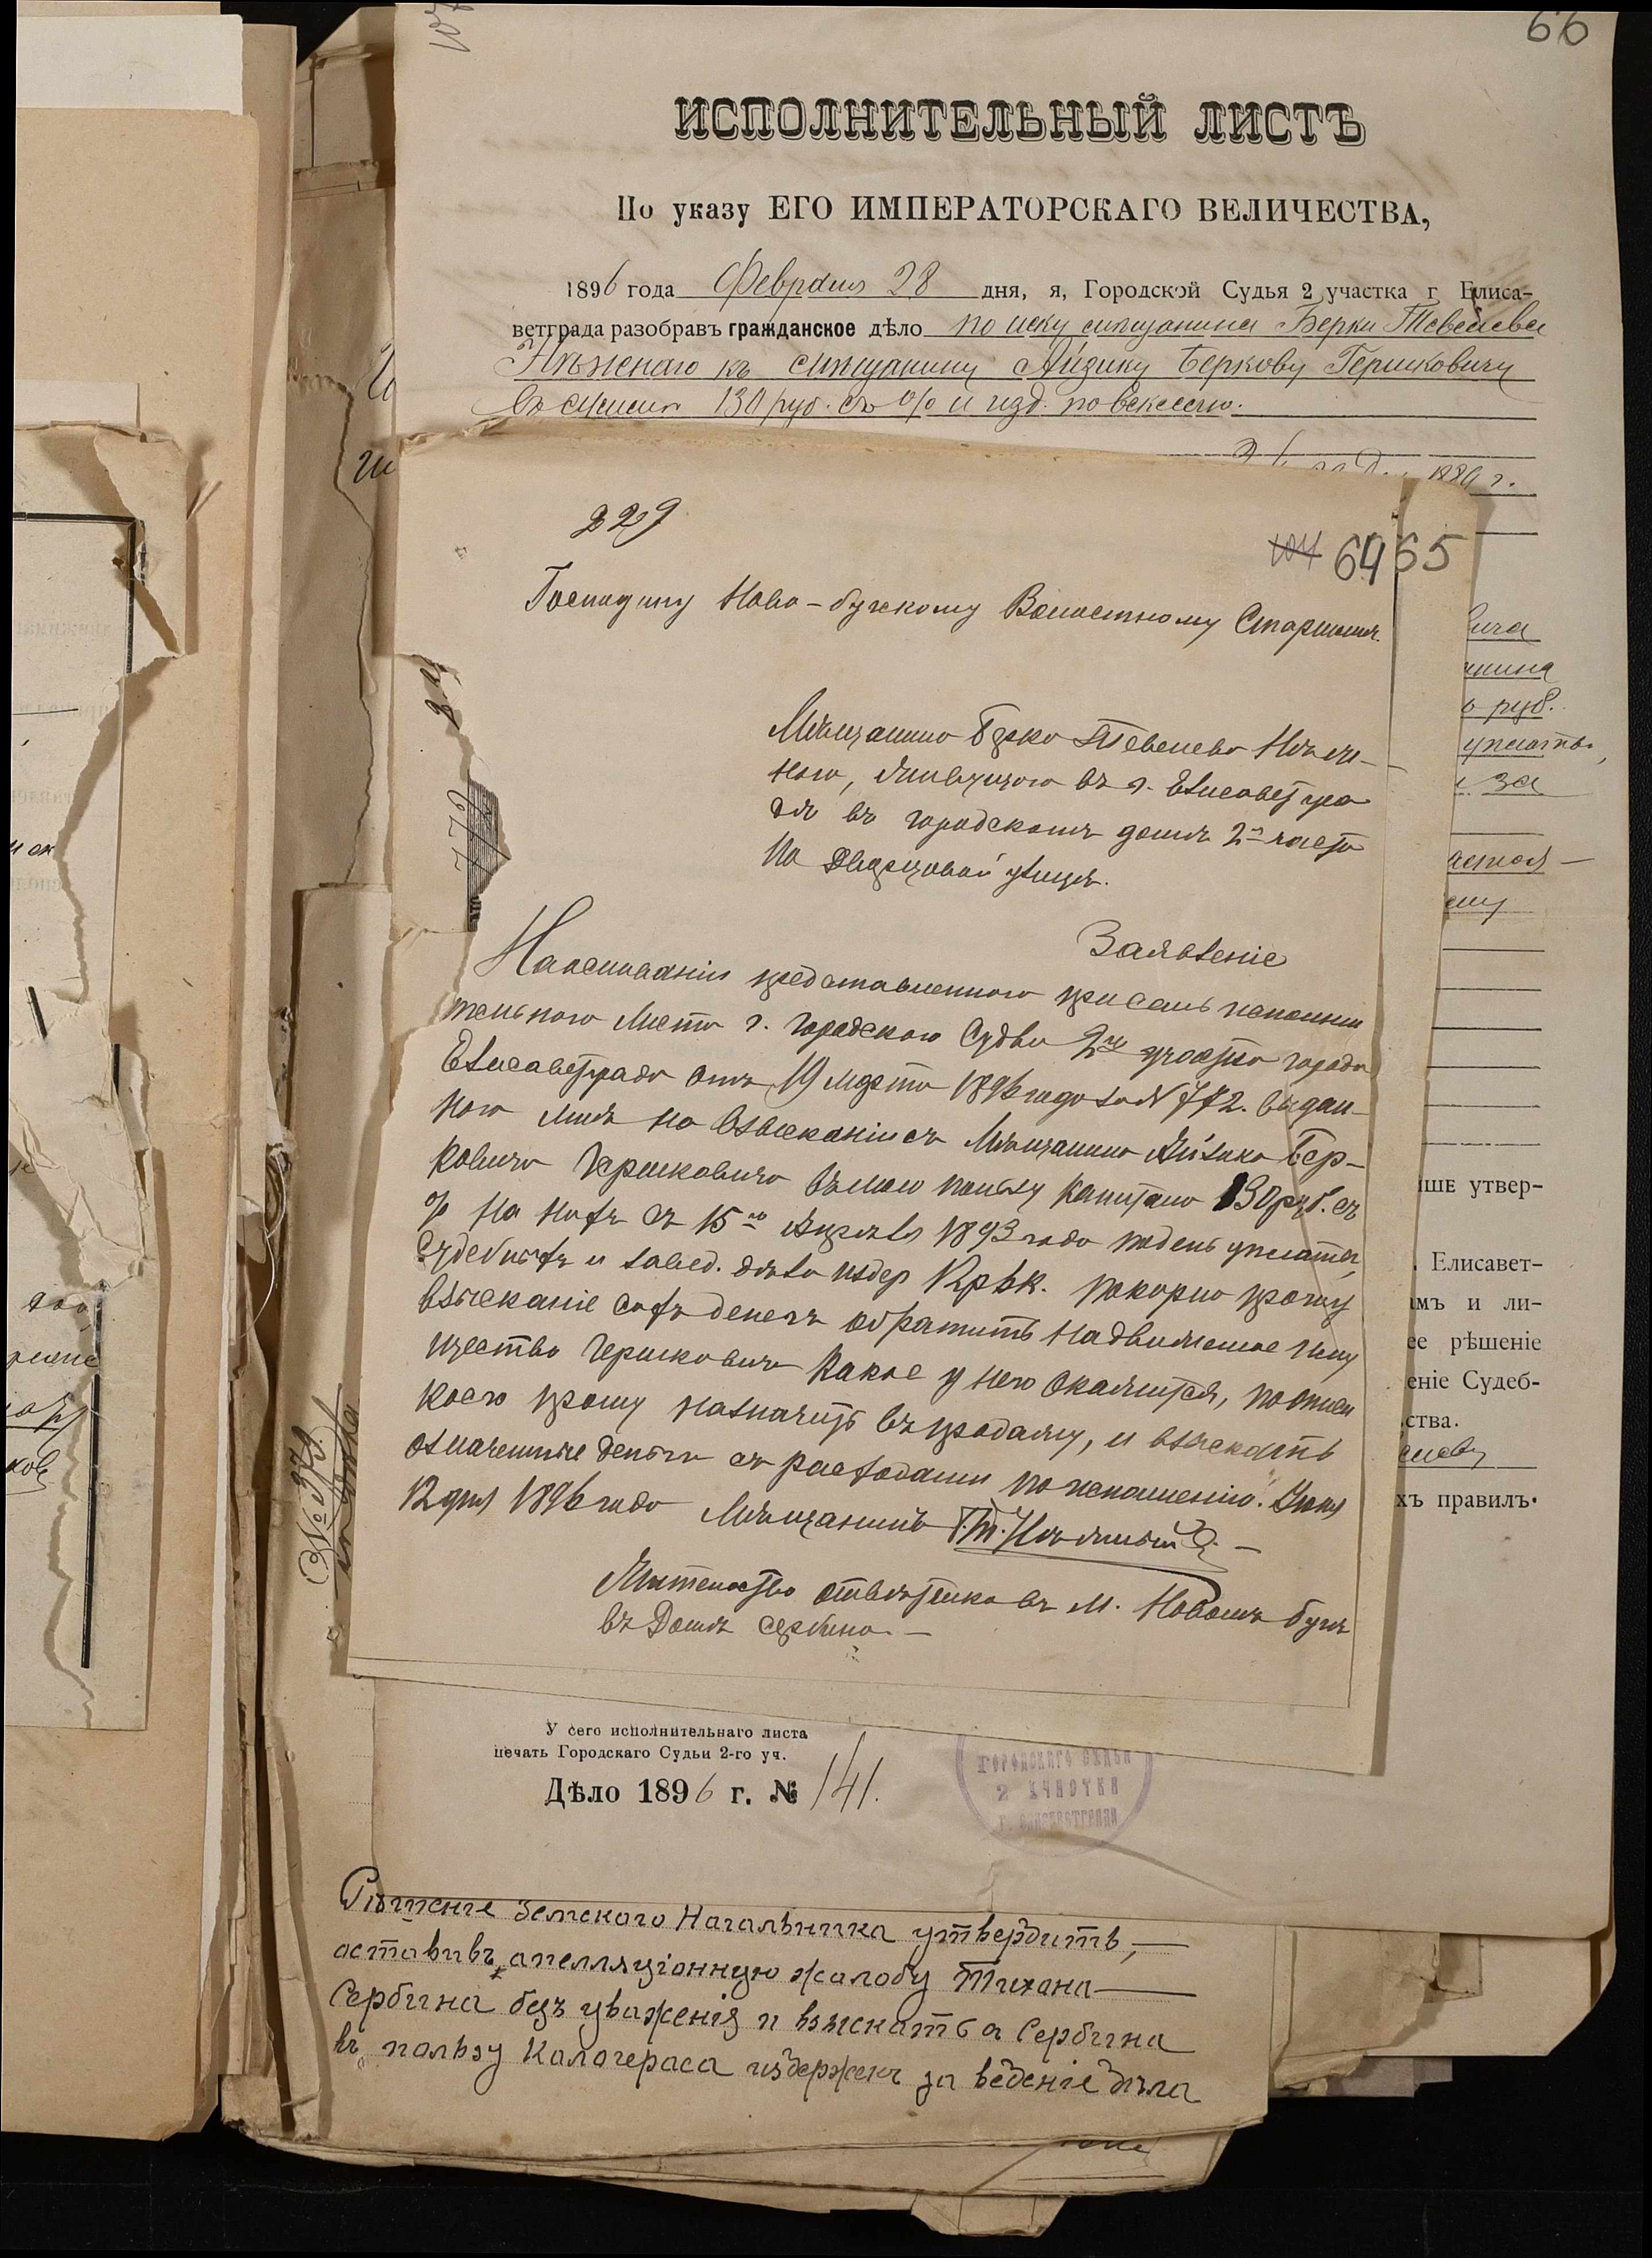 66
ИСПОЛНИТЕЛЬНЫЙ ЛИСТЪ
По указу ЕГО ИМПЕРАТОРСКАГО ВЕЛИЧЕСТВА,
1896 года Февраля 28 дня, я, Городской Судья 2 участка г Елиса-
ветграда разобравъ гражданское дѣло по иску мѣщанина Берки Тевелева
Нѣжнаго къ мѣщанину Айзику Беркову Гершковичу
въ суммѣ 130 руб. съ % и изд. по векселю.
1889 г.
229
64 65
Господину Ново-бугскому Волостному Старшинѣ.
вича
анина
о руб.
уплаты,
за
Мѣщанина Берко Тевелева Нѣж-
ного, живущаго въ г. Елисаветгра
дѣ въ городскомъ домѣ 2й части
на Дворцовой улицѣ.
772
Заявленіе
На основаніи представленного при семъ исполни
тельного листа г. Городского Судьи 2го участка города
Елисаветграда отъ 19 марта 1896 года за № 772. выдан-
ного мнѣ на взысканіе съ мѣщанина Айзика Бер-
ковича Гершковича въ мою пользу капитала 130 руб. съ
% на нихъ съ 15го Апрѣля 1893 года по день уплаты,
судебныхъ и за вед. дѣла издер 12 р. к. покорно прошу
взысканіе сихъ денегъ обратить на движимое иму
щество Гершковича какое у него окажится, по описи
коего прошу назначить въ продажу, и взыскать
означенные деньги съ расходами по исполнению. Июня
12 дня 1896 года Мѣщанинъ Б. Т. Нѣжный
Жительство отвѣтчика въ м. Новомъ бугѣ
въ Домѣ Сербина. —
ше утвер-
. Елисавет-
имъ и ли-
ее рѣшеніе
еніе Судеб-
ства.
хъ правилъ.
У сего исполнительнаго листа
печать Городскаго Судьи 2-го уч.
Дѣло 1896 г. № 141.
ГОРОДСКАГО СУДЬИ
2 УЧАСТКА
Г. ЕЛИСАВЕТГРАДА
Рѣшеніе Земскаго Начальника утвердить,
оставивъ апелляціонную жалобу Тихона
Сербина безъ уваженія и взыскать съ Сербина
въ пользу Калогераса издержекъ за веденіе дѣла